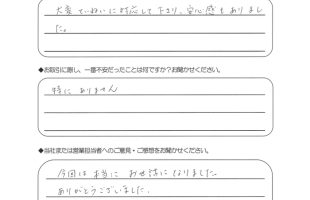 大変ていねいに対応して下さり、安心感もありまし
た。
◆お取引に際し、一番不安だったことは何ですか？お聞かせください。
特にありません
◆当社または営業担当者へのご意見・ご感想をお聞かせください。
今回は本当にお世話になりました
ありがとうございました。